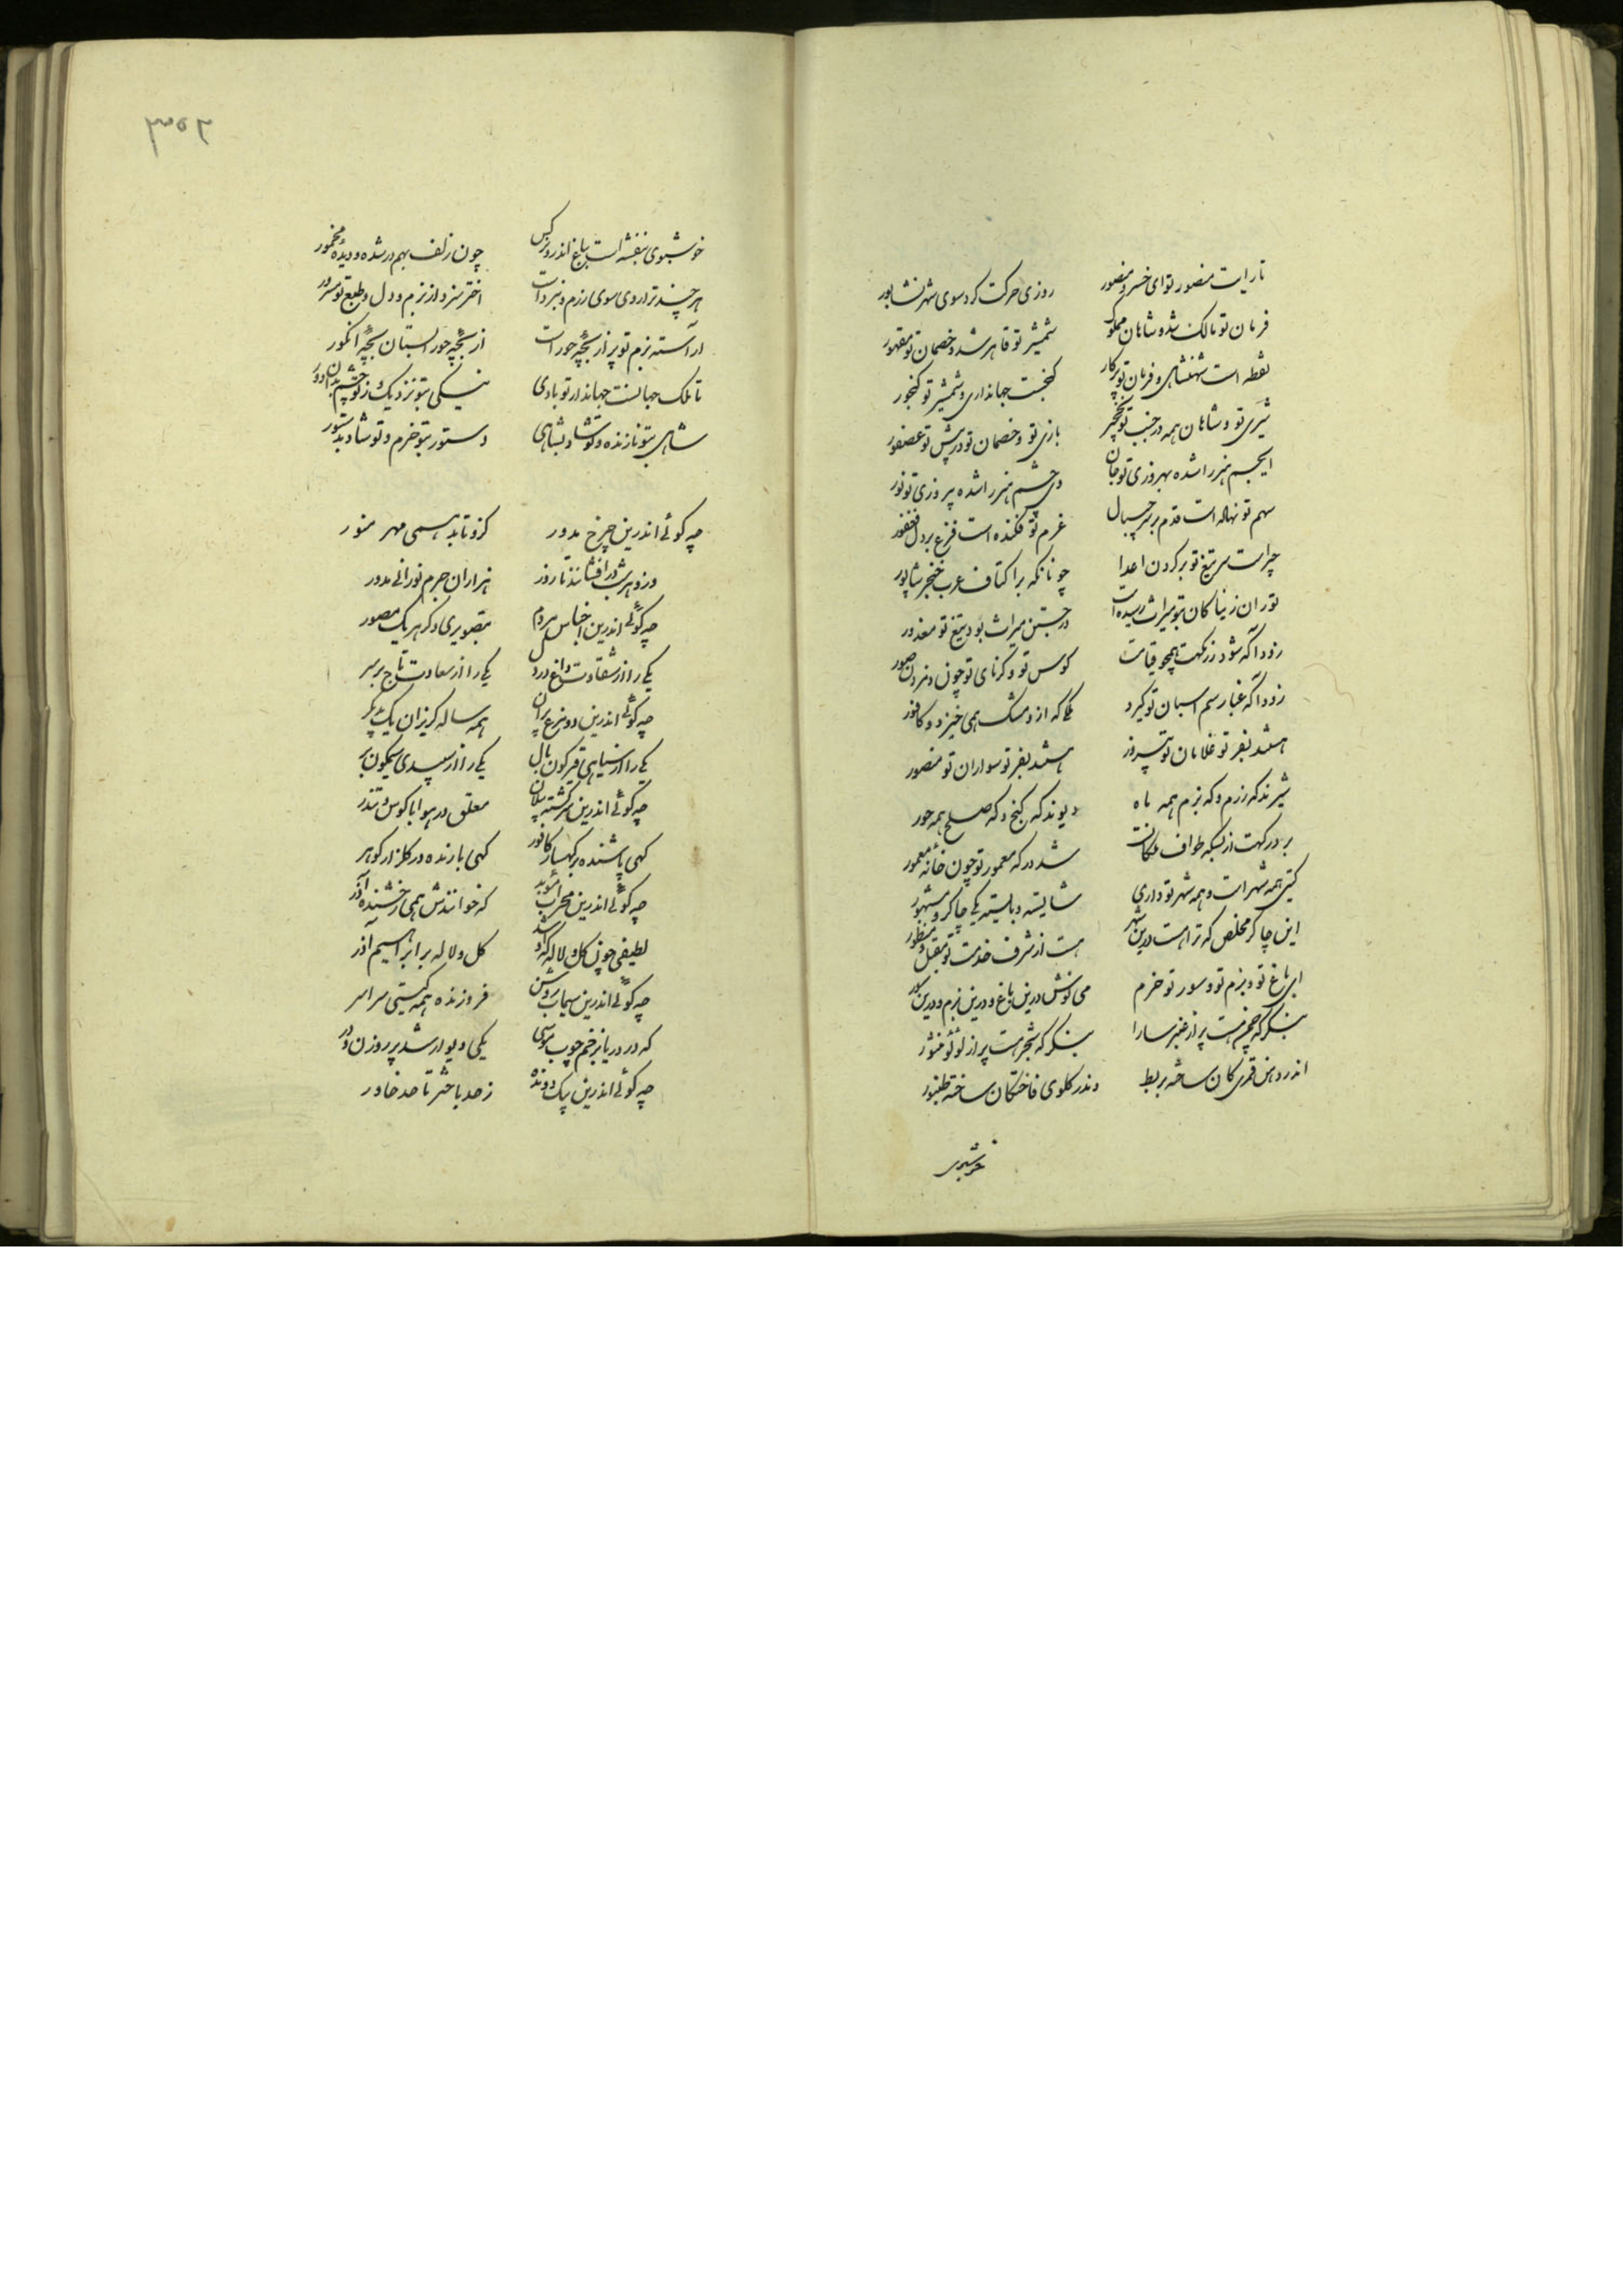 تا رایت منصور تو ای خسرو منصور    روزی حرکت کرد سوی شهر نشابور
فرمان تو مالک شده شاهان مملوک    شمشیر تو قاهر شده خصمان تو مقهور
نقطه است شهنشاهی و فرمان تو پرکار    گنجست جهانداری و شمشیر تو گنجور
شیری تو و شاهان همه در جنب تو نخچیر    بازی تو و خصمان تو در پیش تو عصفور
ای جسم هنر را شده بهروزی تو جان    وی چشم هنر را شده پیروزی تو نور
سهم تو نهاده است قدم بر سر چیپال    عزم تو فکنده است فزع بر دل فغفور
چراست سر تیغ تو بر گردن اعدا    چونانکه بر اکتاف عرب خنجر شاپور
توران ز نیاکان بتو میراث رسیده است    در جستن میراث بود تیغ تو معذور
زودا که شود رزمگهت همچو قیامت    کوس تو و کرنای تو چون دمیدن صور
زودا که غبار سم اسبان تو گیرد    که از و مشک همی خیزد و کافور
هستند بفر تو غلامان تو پیروز    هستند بفر تو سواران تو منصور
شیرند که رزم و که بزم همه ماه    دیوند که و که صلح همه حور
بر درگهت از بسکه طواف ملکانست    شد درگه معمور تو چون خانه معمور
گیتی همه شهر است و همه شهر تو داری    شایسته و بایسته یکی چاکر و مشهور
این چاکر مخلص که تراست درین شهر    هست از شرف خدمت تو مقبل و منظور
ای باغ تو و بزم تو و سور تو خرم    می نوش درین باغ و درین بزم و درین سور
بنگر که چمن هست پر از عنبر سارا    بنگر که شجر هست پر از لؤلؤ منثور
اندر دهن قمریکان ساخته بربط    وندر گلوی فاختگان ساخته طنبور
خوشبوی
۳۵۲
خوشبوی بنفشه است بباغ اندر و نرگس    چون زلف بهم بر شده و دیده مخمور
هر چند ترا روی سوی رزم و نبرد است    اختر سزد از بزم و دل و طبع تو مسرور
آراسته بزم تو پر از بچه حور است    از بچه حور استان بچه انگور
تا ملک جهانست جهاندار تو بادی    نیکی بتو نزدیک و ز تو چشم بدان دور
شاهی بتو نازنده و تو شاد بشاهی    دستور بتو خرم و تو شاد بدستور
چه گوئی اندرین چرخ مدور    کزو تابد همی مهر منور
وزو هر شب در افشانند تا روز    هزاران جرم نورانی مدور
چه گوئی اندرین اجناس مردم    بتصویری دگر هر یک مصور
یکی را از شقاوت داغ بر دل    یکی را از سعادت تاج بر سر
چه گوئی اندرین دو مرغ پران    همه ساله گریزان یک ز دیگر
یکی را از سیاهی قیرگون بال    یکی را از سپیدی سیمگون پر
چه گوئی اندرین سرگشته پیلان    معلق در هوا با کوس و تندر
گهی پاشنده بر کهسار کافور    گهی بارنده در گلزار گوهر
چه گوئی اندرین محراب موبد    که خوانندش همی رخشنده آذر
لطیفی چون گل و لاله که او شد    گل و لاله بر ابراهیم آذر
چه گوئی اندرین سیماب روشن    فروزنده همه گیتی سراسر
که در دریا بزخم چوب موسی    یکی دیوار شد پر روزن و در
چه گوئی اندرین پیک دونده    ز حد باختر تا حد خاور